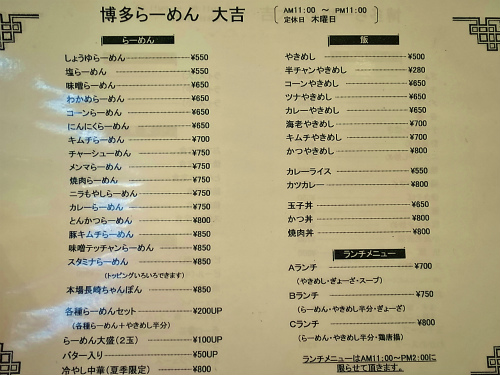 博多らーめん 大吉
AM11:00 ～ PM11:00
定休日 木曜日
らーめん
しょうゆらーめん ¥550
塩らーめん ¥550
味噌らーめん ¥650
わかめらーめん ¥650
コーンらーめん ¥650
にんにくらーめん ¥650
キムチらーめん ¥700
チャーシューめん ¥750
メンマらーめん ¥750
焼肉らーめん ¥750
ニラもやしらーめん ¥750
カレーらーめん ¥750
とんかつらーめん ¥800
豚キムチらーめん ¥850
味噌テッチャンらーめん ¥850
スタミナらーめん ¥850
(トッピングいろいろできます)
本場長崎ちゃんぽん ¥850
各種らーめんセット ¥200UP
(各種らーめん+やきめし半分)
らーめん大盛(2玉) ¥100UP
バター入り ¥50UP
冷やし中華(夏季限定) ¥800
飯
やきめし ¥500
半チャンやきめし ¥280
コーンやきめし ¥650
ツナやきめし ¥650
カレーやきめし ¥650
海老やきめし ¥700
キムチやきめし ¥700
かつやきめし ¥800
カレーライス ¥550
カツカレー ¥800
玉子丼 ¥650
かつ丼 ¥800
焼肉丼 ¥800
ランチメニュー
Aランチ ¥700
(やきめし・ぎょーざ・スープ)
Bランチ ¥750
(らーめん・やきめし半分・ぎょーざ)
Cランチ ¥800
(らーめん・やきめし半分・鶏唐揚)
ランチメニューはAM11:00～PM2:00に
限らせて頂きます。